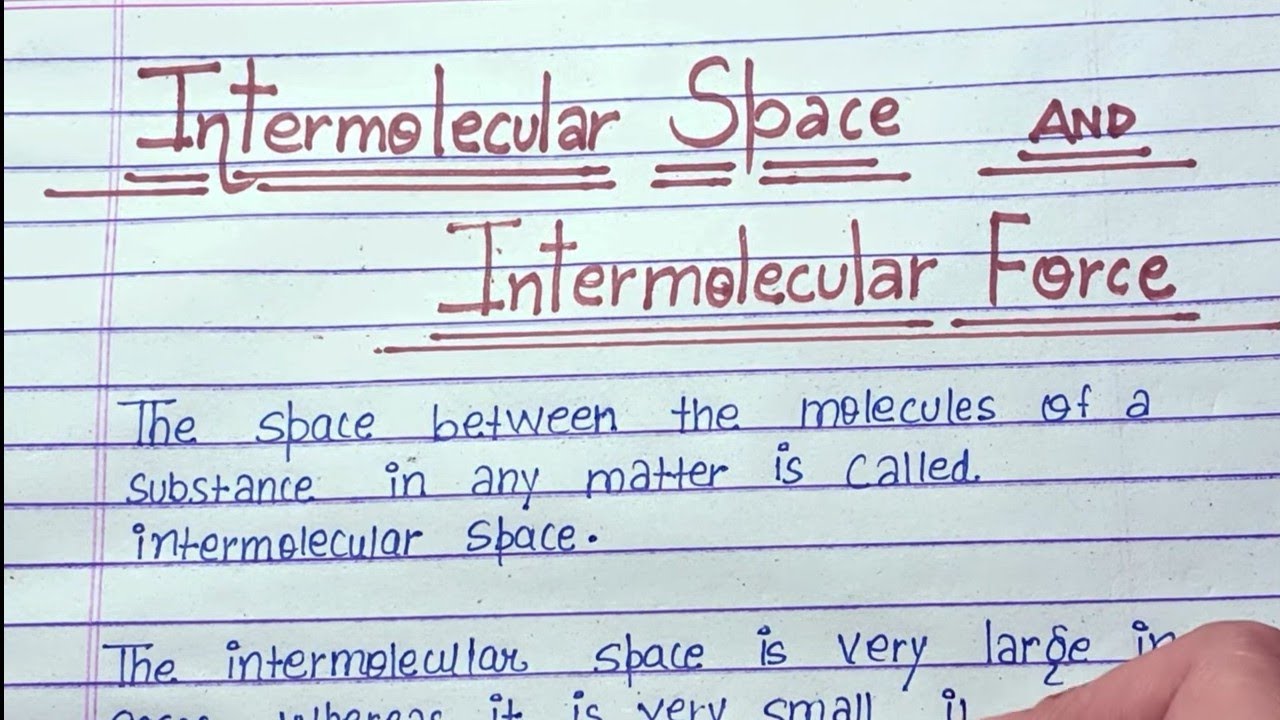 Intermolecular Space AND
Intermolecular Force
The space between the molecules of a
substance in any matter is called.
intermolecular space.
The intermolecular space is very large in
it is very small